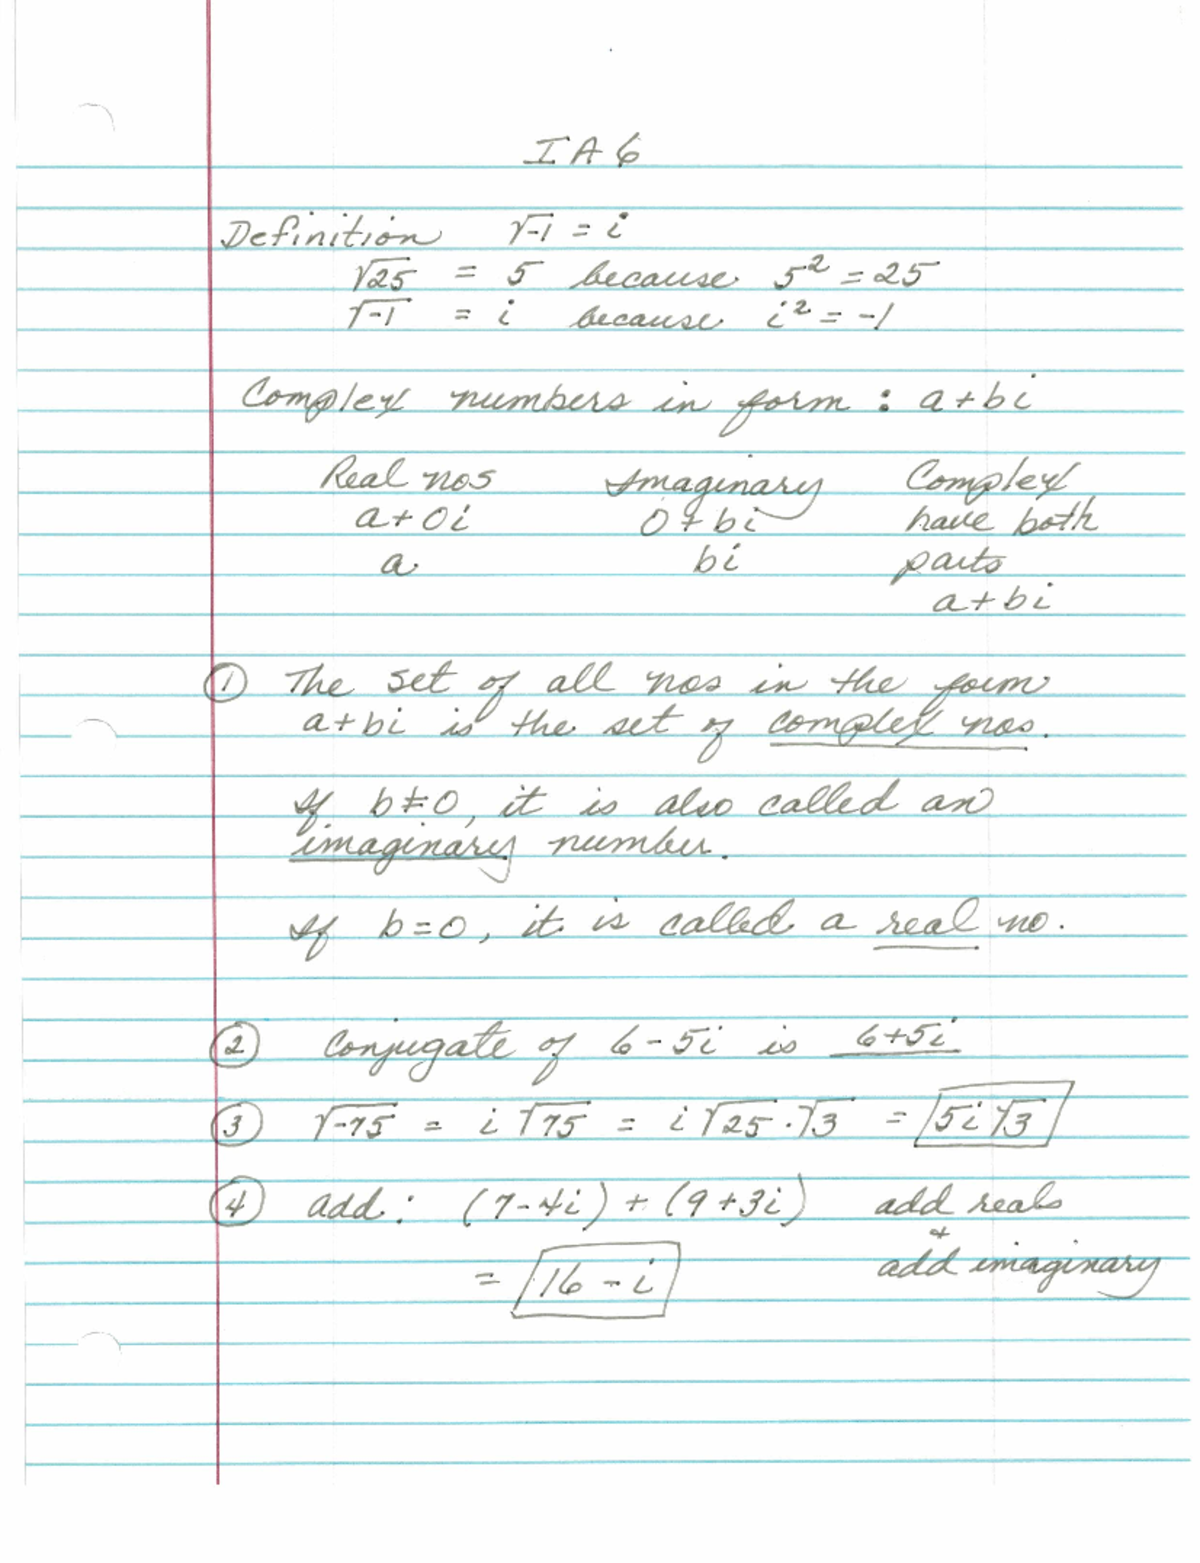 IA6
Definition √-1 = i
√25 = 5 because 5² = 25
√-1 = i because i² = -1
Complex numbers in form : a+bi
Real nos Imaginary Complex
a+0i 0+bi have both
a bi parts
a+bi
① The set of all nos in the form
a+bi is the set of complex nos.
If b≠0, it is also called an
imaginary number.
If b=0, it is called a real no.
② Conjugate of 6-5i is 6+5i
③ √-75 = i√75 = i√25·√3 = 5i√3
④ add: (7-4i) + (9+3i) add reals
&
= 16-i add imaginary